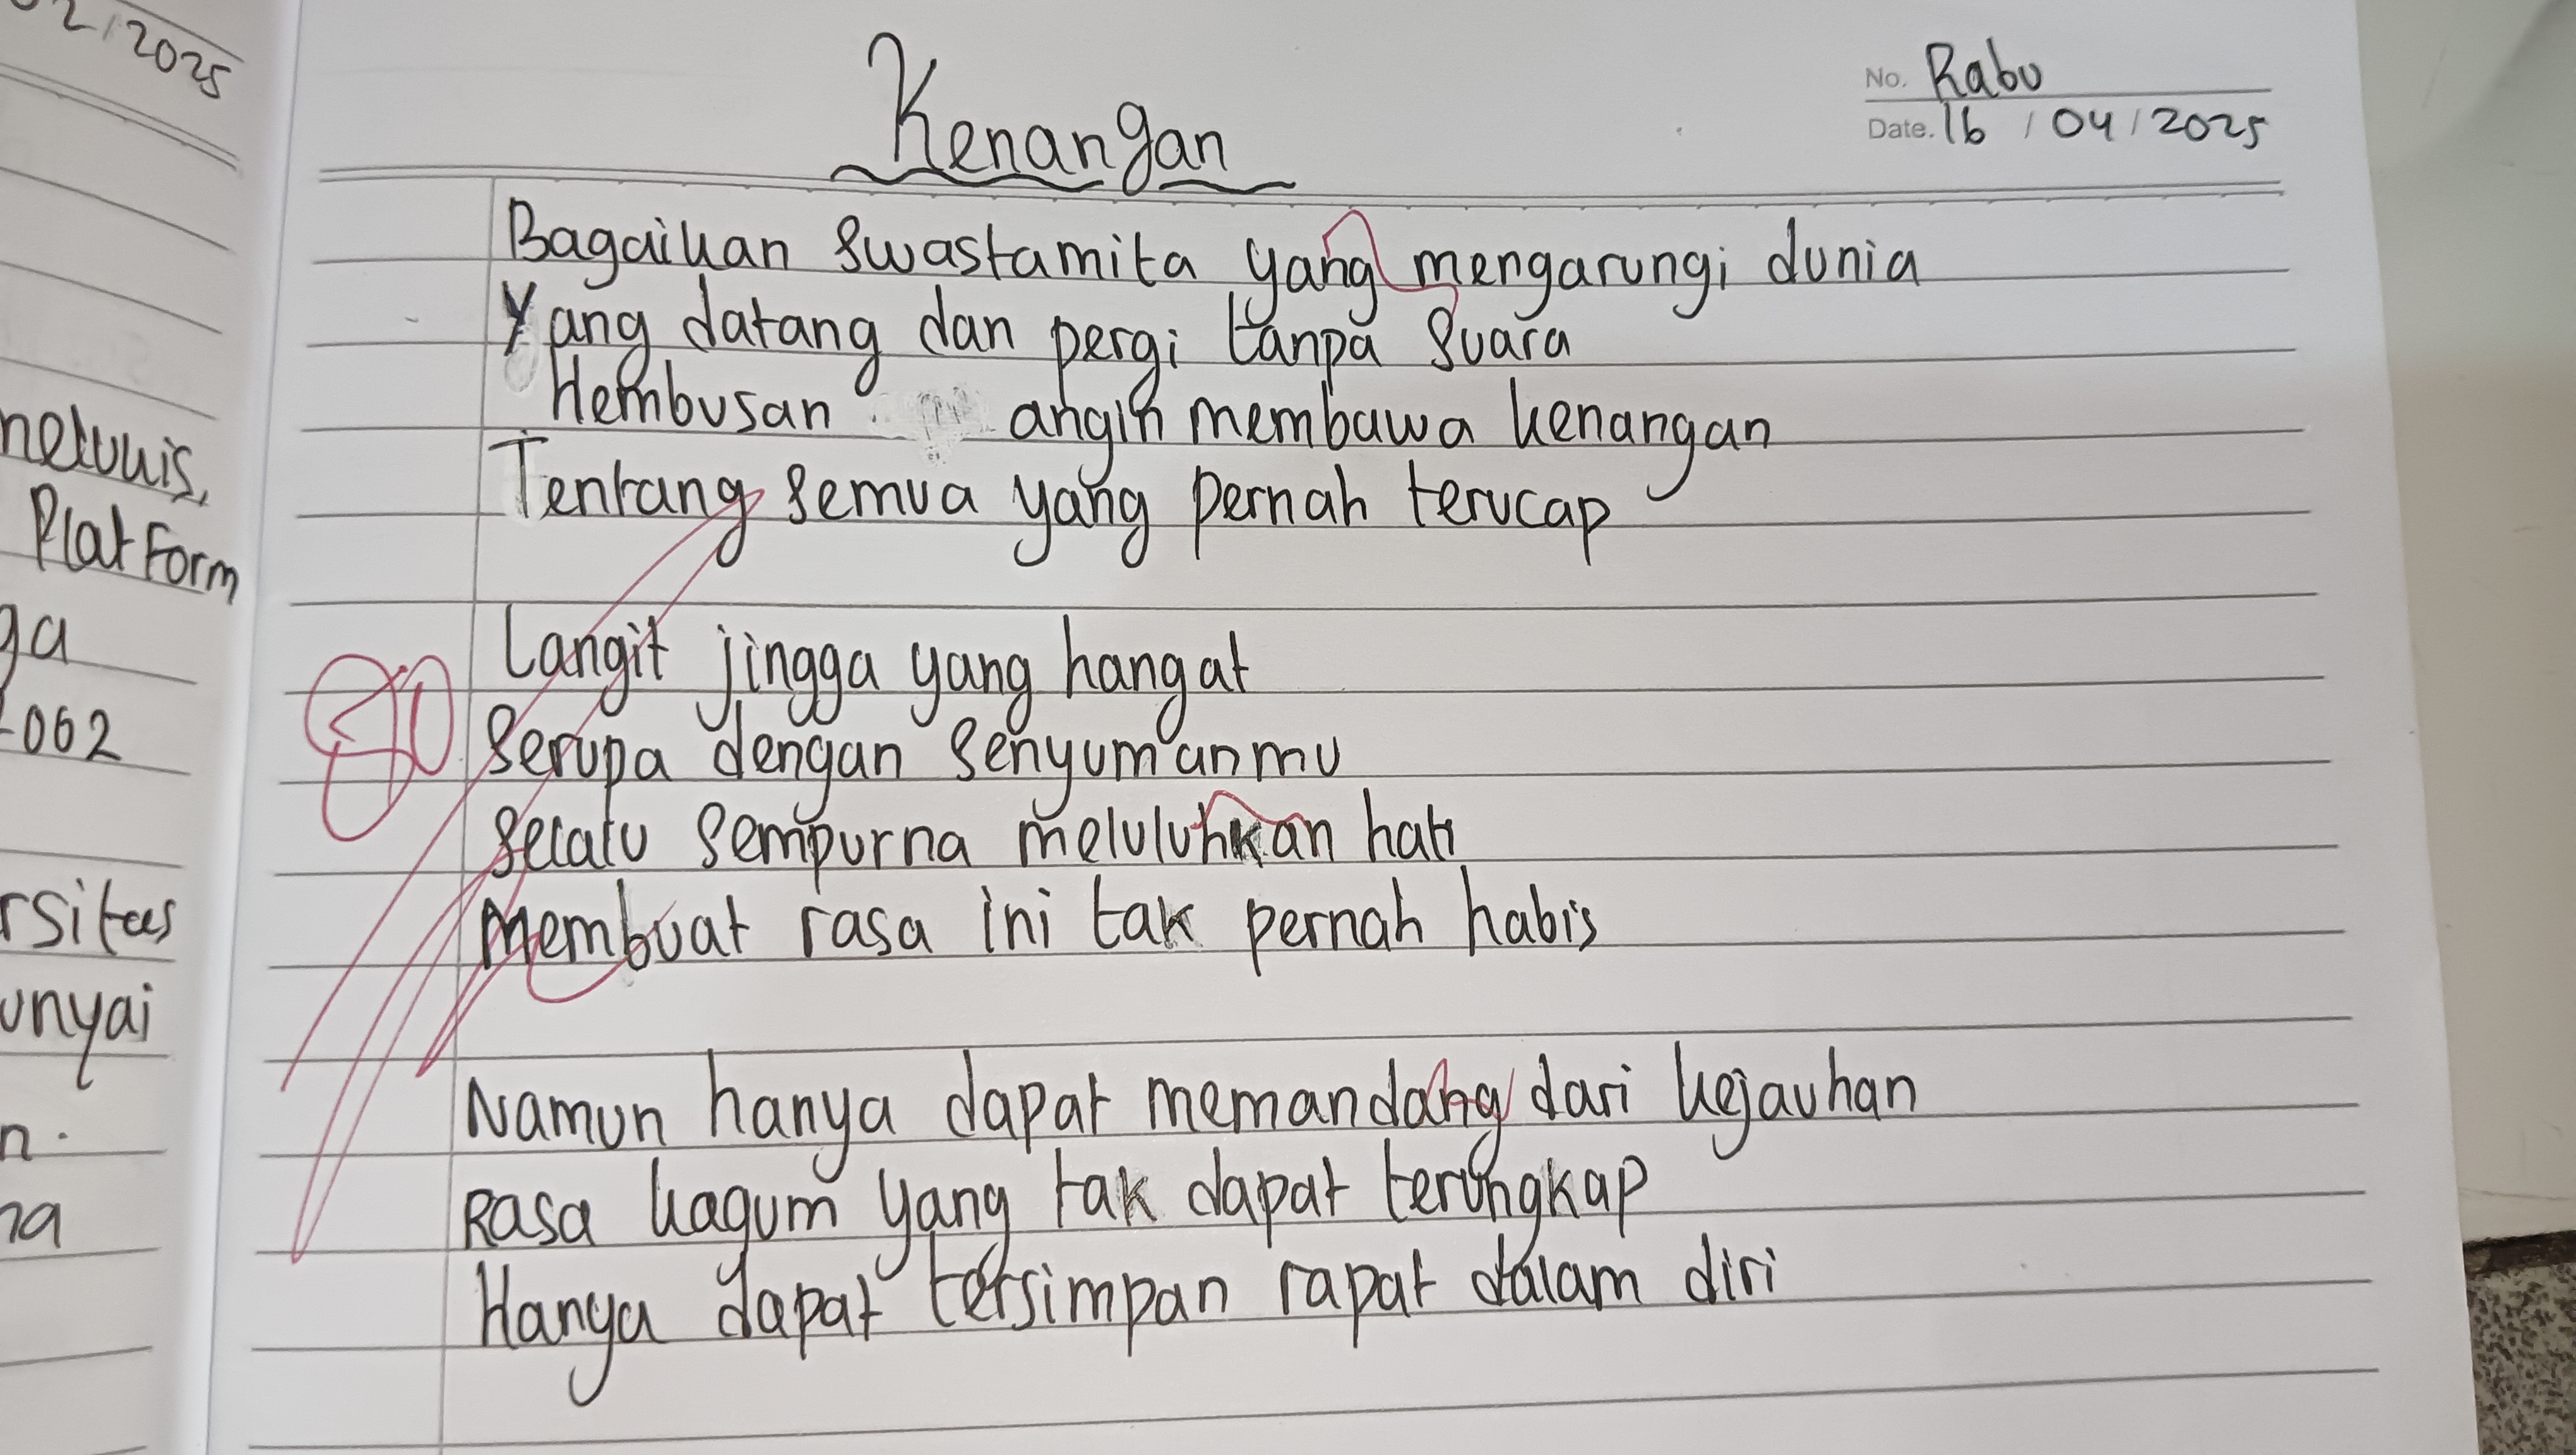 02/2025
nekuis,
Platform
ga
-002
rsitas
unyai
n.
na
Kenangan
No. Rabu
Date. 16 / 04 / 2025
Bagaikan swastamita yang mengarungi dunia
Yang datang dan pergi tanpa suara
Hembusan angin membawa kenangan
Tentang semua yang pernah terucap
Langit jingga yang hangat
Serupa dengan senyumanmu
Selalu sempurna meluluhkan hati
Membuat rasa ini tak pernah habis
Namun hanya dapat memandang dari kejauhan
Rasa kagum yang tak dapat terungkap
Hanya dapat tersimpan rapat dalam diri